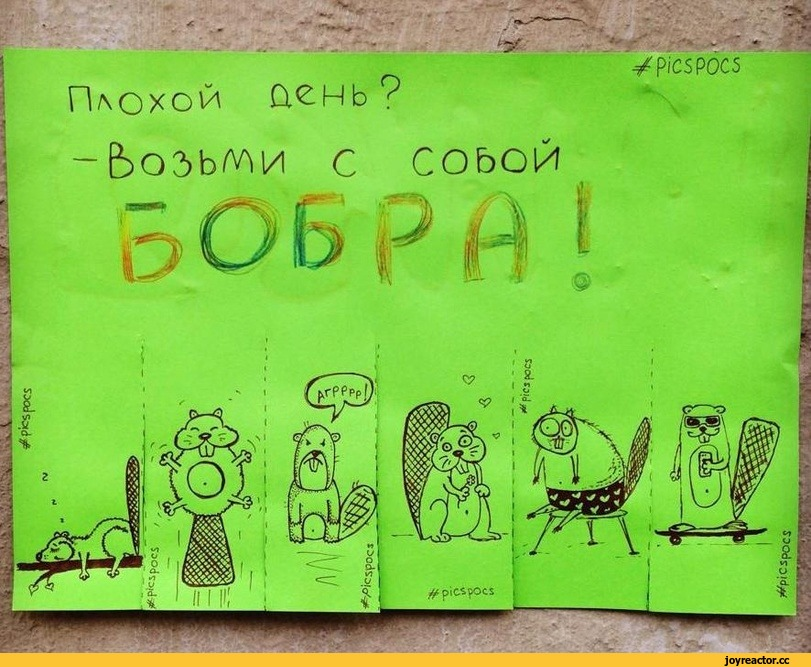 #picspocs
Плохой день?
-Возьми с собой
БОБРА!
#picspocs
z
z
z
#picspocs
Агрррр!
#picspocs
#picspocs
#picspocs
#picspocs
joyreactor.cc